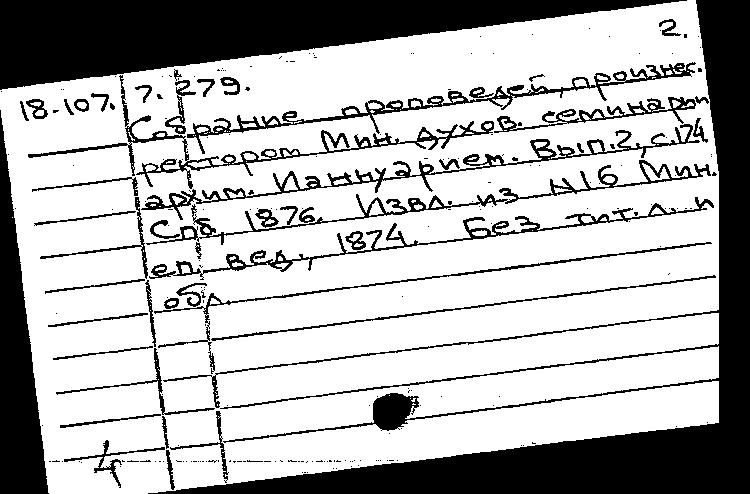 2.
18.107. 7. 279.
Собрание проповедей, произнес.
ректором Мин. духов. семинарии
архим. Ианнуарием. Вып. 2, с. 174
Спб, 1876. Извл. из №16 Мин.
еп. вед., 1874. Без тит. л. и
обл.
4